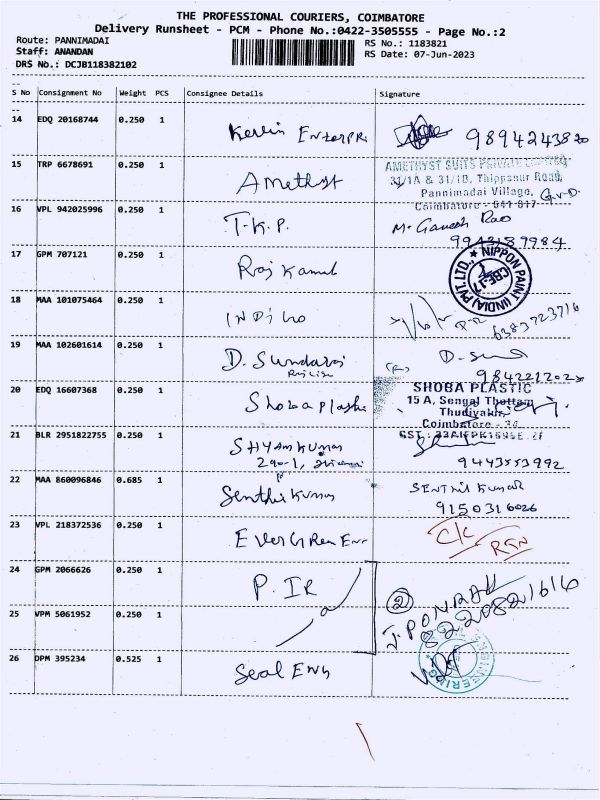 THE PROFESSIONAL COURIERS, COIMBATORE
Delivery Runsheet - PCM - Phone No.:0422-3505555 - Page No.:2
Route: PANNIMADAI
RS No.: 1183821
Staff: ANANDAN
RS Date: 07-Jun-2023
DRS No.: DCJB118382102
S No Consignment No Weight PCS Consignee Details Signature
14 EDQ 20168744 0.250 1 Kerlin Enterpri 9894243820
15 TRP 6678691 0.250 1 Amethyst
AMETHYST SUITS PRIVATE LIMITED
31/1A & 31/1B, Thippanur Road,
Pannimadai Village,
Coimbatore - 641 017
16 VPL 942025996 0.250 1 T.K.P. M. Ganesh Rao
9943189984
17 GPM 707121 0.250 1 Raj Kamal
NIPPON PAINT (INDIA) PVT. LTD.,
CBE-17
18 MAA 101075464 0.250 1 INDiGo
6383723716
19 MAA 102601614 0.250 1 D. Sundaraj
20 EDQ 16607368 0.250 1 Shoba plasti
SHOBA PLASTIC
15 A, Sengal Thottam
Thudiyalur
Coimbatore - 34
21 BLR 2951822755 0.250 1 SHYAMKUMAR
9443553992
22 MAA 860096846 0.685 1 Senthil Kumar SENTHIL KUMAR
9150316026
23 VPL 218372536 0.250 1 EverGReen Enr C/C
RTN
24 GPM 2066626 0.250 1 P. IR 2
J. PONRAJ
8220821616
25 VPM 5061952 0.250 1
26 DPM 395234 0.525 1 Seal Eng
ENGINEERING